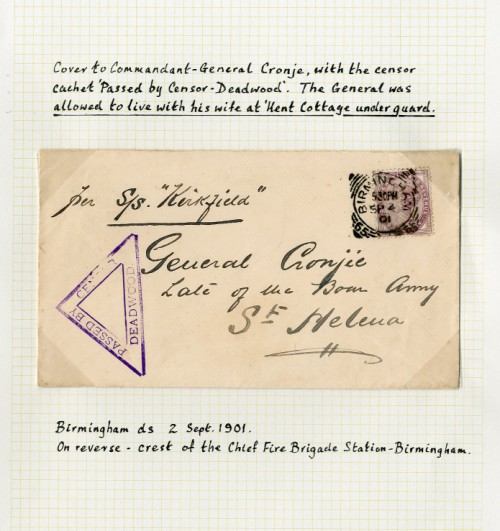 Cover to Commandant-General Cronje, with the censor
cachet 'Passed by Censor-Deadwood'. The General was
allowed to live with his wife at 'Kent Cottage under guard.
per S/s. "Kirkfield"
BIRMINGHAM
5.30PM
SP 2
01
PASSED BY CENSOR
DEADWOOD
General Cronjé
Late of the Boer Army
St Helena
Birmingham ds 2 Sept. 1901.
On reverse - crest of the Chief Fire Brigade Station-Birmingham.